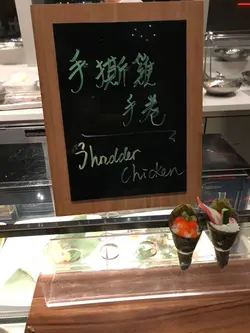 手撕雞
手卷
Shadder
Chicken